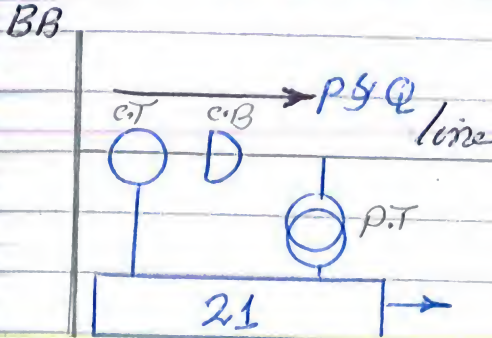 BB
P & Q
C.T C.B
line
P.T
21